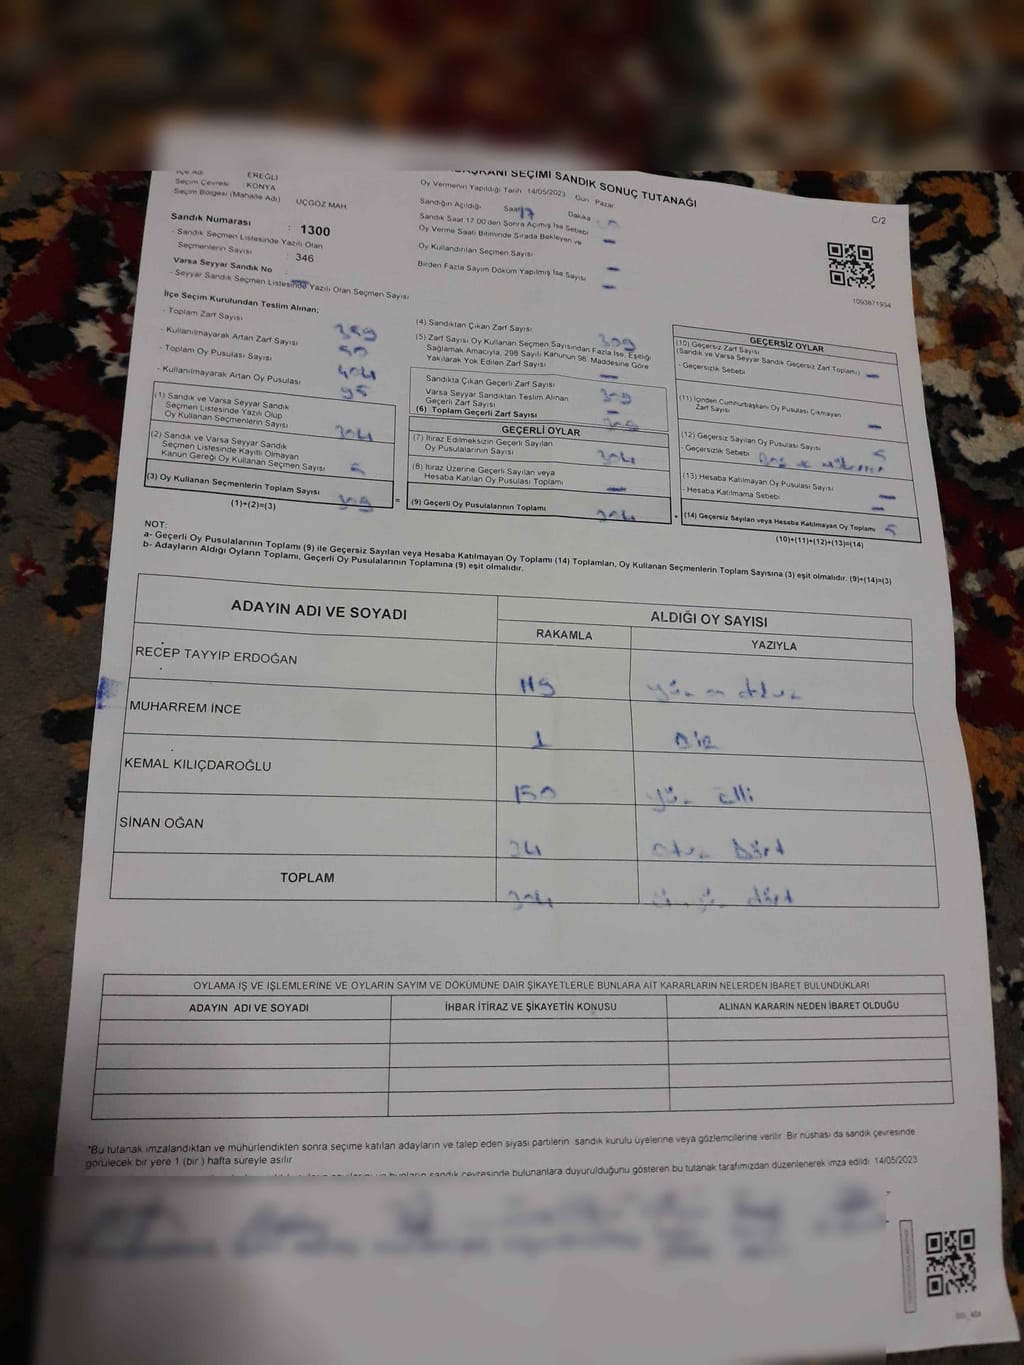 EREĞLİ
Seçim Çevresi : KONYA
Seçim Bölgesi (Mahalle Adı) : ÜÇGÖZ MAH.
SEÇİMİ SANDIK SONUÇ TUTANAĞI
Oy Vermenin Yapıldığı Tarih 14/05/2023 Gün Pazar
C/2
Sandığın Açıldığı Saat 17 Dakika
Sandık Saat 17.00'den Sonra Açılmış İse Sebebi
Oy Verme Saati Bitiminde Sırada Bekleyen ve
Oy Kullandırılan Seçmen Sayısı
Birden Fazla Sayım Döküm Yapılmış İse Sayısı
1093871934
Sandık Numarası : 1300
- Sandık Seçmen Listesinde Yazılı Olan
Seçmenlerin Sayısı : 346
Varsa Seyyar Sandık No
- Seyyar Sandık Seçmen Listesinde Yazılı Olan Seçmen Sayısı
İlçe Seçim Kurulundan Teslim Alınan;
- Toplam Zarf Sayısı
- Kullanılmayarak Artan Zarf Sayısı
- Toplam Oy Pusulası Sayısı 404
- Kullanılmayarak Artan Oy Pusulası 95
(1) Sandık ve Varsa Seyyar Sandık
Seçmen Listesinde Yazılı Olup
Oy Kullanan Seçmenlerin Sayısı 304
(2) Sandık ve Varsa Seyyar Sandık
Seçmen Listesinde Kayıtlı Olmayan
Kanun Gereği Oy Kullanan Seçmen Sayısı 5
(3) Oy Kullanan Seçmenlerin Toplam Sayısı 309
(1)+(2)=(3)
(4) Sandıktan Çıkan Zarf Sayısı 309
(5) Zarf Sayısı Oy Kullanan Seçmen Sayısından Fazla İse, Eşitliği
Sağlamak Amacıyla, 298 Sayılı Kanunun 98. Maddesine Göre
Yakılarak Yok Edilen Zarf Sayısı
Sandıkta Çıkan Geçerli Zarf Sayısı 309
Varsa Seyyar Sandıktan Teslim Alınan
Geçerli Zarf Sayısı
(6) Toplam Geçerli Zarf Sayısı 309
GEÇERLİ OYLAR
(7) İtiraz Edilmeksizin Geçerli Sayılan
Oy Pusulalarının Sayısı 304
(8) İtiraz Üzerine Geçerli Sayılan veya
Hesaba Katılan Oy Pusulası Toplamı
(9) Geçerli Oy Pusulalarının Toplamı 304
GEÇERSİZ OYLAR
(10) Geçersiz Zarf Sayısı
(Sandık ve Varsa Seyyar Sandık Geçersiz Zarf Toplamı)
- Geçersizlik Sebebi
(11) İçinden Cumhurbaşkanı Oy Pusulası Çıkmayan
Zarf Sayısı
(12) Geçersiz Sayılan Oy Pusulası Sayısı 5
- Geçersizlik Sebebi
(13) Hesaba Katılmayan Oy Pusulası Sayısı
- Hesaba Katılmama Sebebi
(14) Geçersiz Sayılan veya Hesaba Katılmayan Oy Toplamı 5
(10)+(11)+(12)+(13)=(14)
NOT:
a- Geçerli Oy Pusulalarının Toplamı (9) ile Geçersiz Sayılan veya Hesaba Katılmayan Oy Toplamı (14) Toplamları, Oy Kullanan Seçmenlerin Toplam Sayısına (3) eşit olmalıdır. (9)+(14)=(3)
b- Adayların Aldığı Oyların Toplamı, Geçerli Oy Pusulalarının Toplamına (9) eşit olmalıdır.
ADAYIN ADI VE SOYADI
ALDIĞI OY SAYISI
RAKAMLA YAZIYLA
RECEP TAYYİP ERDOĞAN 119
MUHARREM İNCE 1 Bir
KEMAL KILIÇDAROĞLU 150 yüz elli
SİNAN OĞAN 34 otuz Dört
TOPLAM 304 üçyüz dört
OYLAMA İŞ VE İŞLEMLERİNE VE OYLARIN SAYIM VE DÖKÜMÜNE DAİR ŞİKAYETLERLE BUNLARA AİT KARARLARIN NELERDEN İBARET BULUNDUKLARI
ADAYIN ADI VE SOYADI İHBAR İTİRAZ VE ŞİKAYETİN KONUSU ALINAN KARARIN NEDEN İBARET OLDUĞU
*Bu tutanak imzalandıktan ve mühürlendikten sonra seçime katılan adayların ve talep eden siyasi partilerin sandık kurulu üyelerine veya gözlemcilerine verilir. Bir nüshası da sandık çevresinde
görülecek bir yere 1 (bir) hafta süreyle asılır
sandık çevresinde bulunanlara duyurulduğunu gösteren bu tutanak tarafımızdan düzenlenerek imza edildi. 14/05/2023